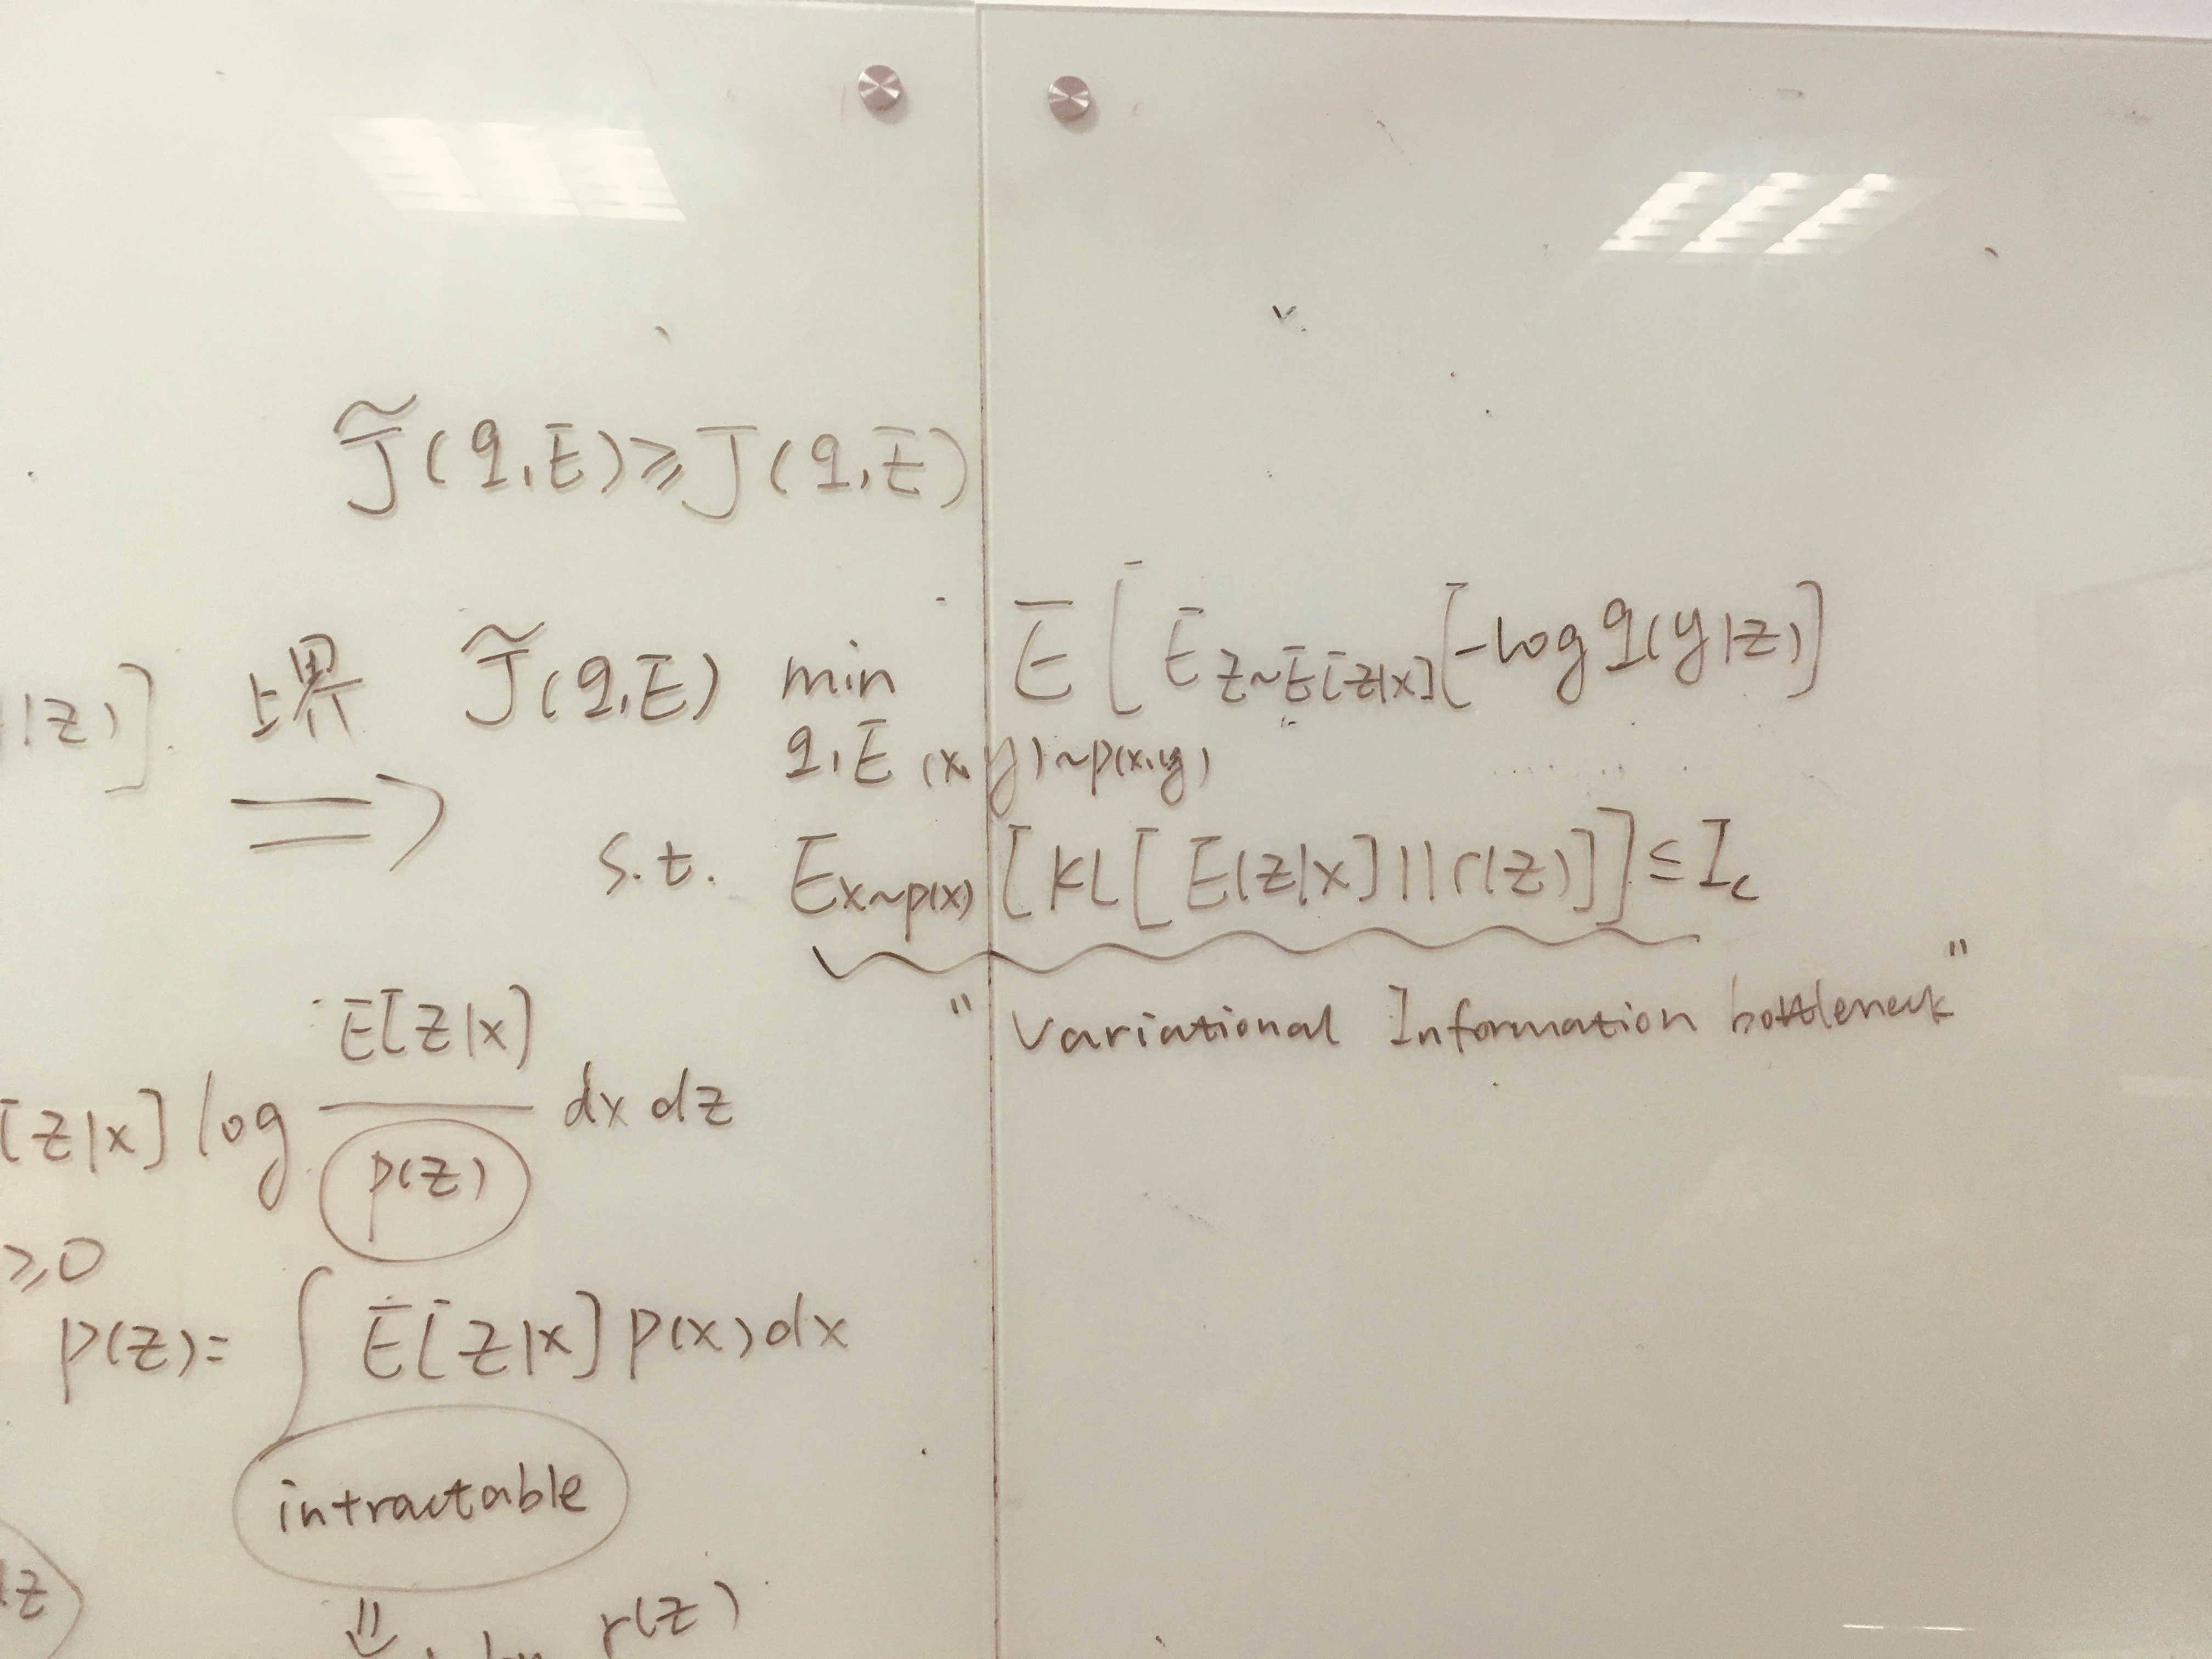 J̃(q,E)≥J(q,E)
|z)] 上界 J̃(q,E) min E[E z~E[z|x][-log q(y|z)]
q,E (x,y)~p(x,y)
⟹
s.t. E x~p(x) [KL[E(z|x]||r(z)]]≤I_c
"Variational Information bottleneck"
E[z|x]
[z|x] log ——— dx dz
p(z)
≥0
p(z)= ∫ E[z|x] p(x) dx
intractable
z
⇓ r(z)